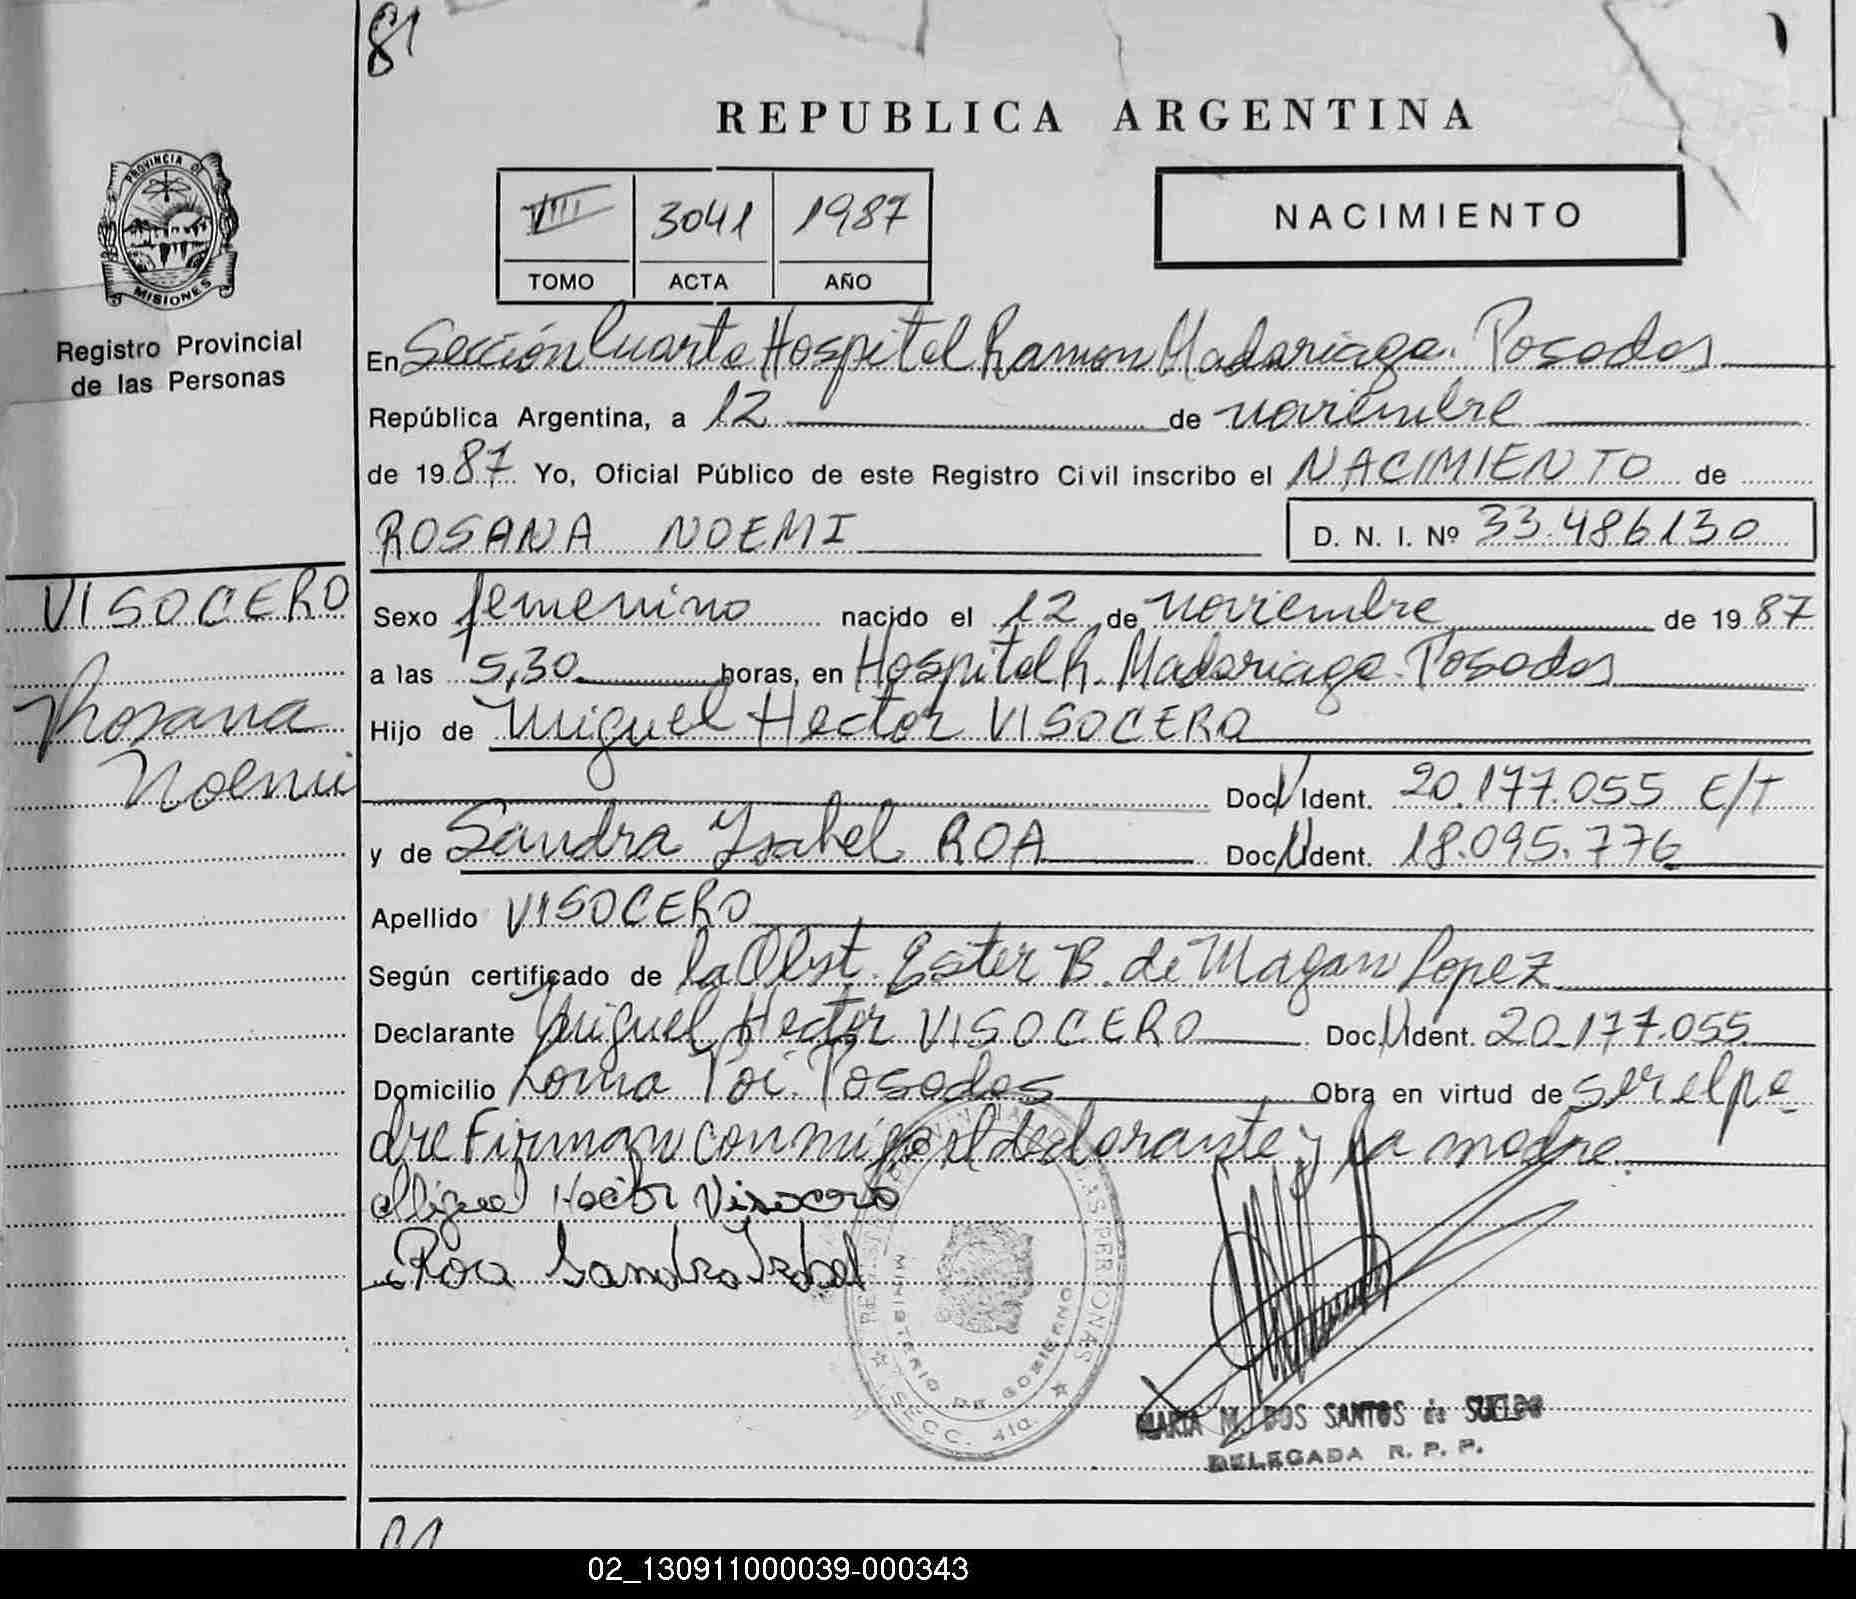 81
REPUBLICA ARGENTINA
PROVINCIA DE
MISIONES
Registro Provincial
de las Personas
VIII 3041 1987
TOMO ACTA AÑO
NACIMIENTO
En Sección Cuarta Hospital Ramon Madariaga. Posadas
República Argentina, a 12 de noviembre
de 1987 Yo, Oficial Público de este Registro Civil inscribo el NACIMIENTO de
ROSANA NOEMI
D. N. I. Nº 33.486.130
VISOCERO
Rosana
Noemi
Sexo femenino nacido el 12 de noviembre de 1987
a las 5,30 horas, en Hospital R. Madariaga. Posadas
Hijo de Miguel Hector VISOCERO
Doc. Ident. 20.177.055 E/T
y de Sandra Ysabel ROA Doc. Ident. 18.095.776
Apellido VISOCERO
Según certificado de la Obst. Ester B. de Magan Lopez
Declarante Miguel Hector VISOCERO Doc. Ident. 20.177.055
Domicilio Loma Poi. Posadas Obra en virtud de ser el pa-
dre Firman conmigo el declarante y la madre.
Miguel Hector Visocero
Roa Sandra Izabel
REGISTRO PROVINCIAL DE LAS PERSONAS
MINISTERIO DE GOBIERNO
SECC. 4ta.
MARIA M. DOS SANTOS de SUELDO
DELEGADA R. P. P.
02_130911000039-000343